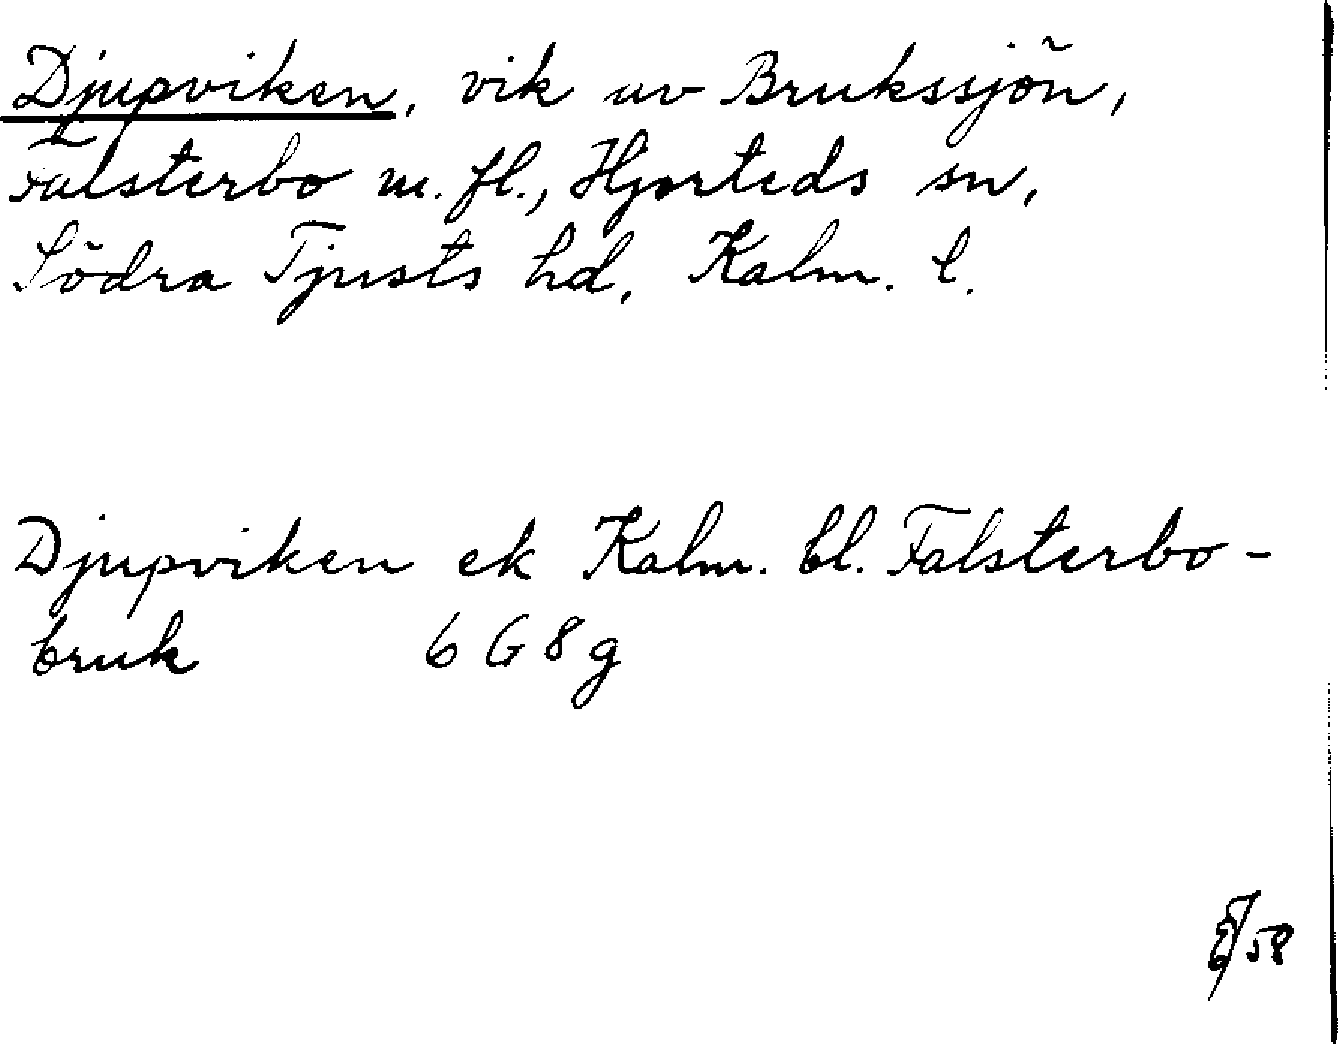 Djupviken, vik av Brukssjön,
Falsterbo m. fl., Hjorteds sn,
Södra Tjusts hd, Kalm. l.
Djupviken ek Kalm. bl. Falsterbo-
bruk 6 G 8 g
/58